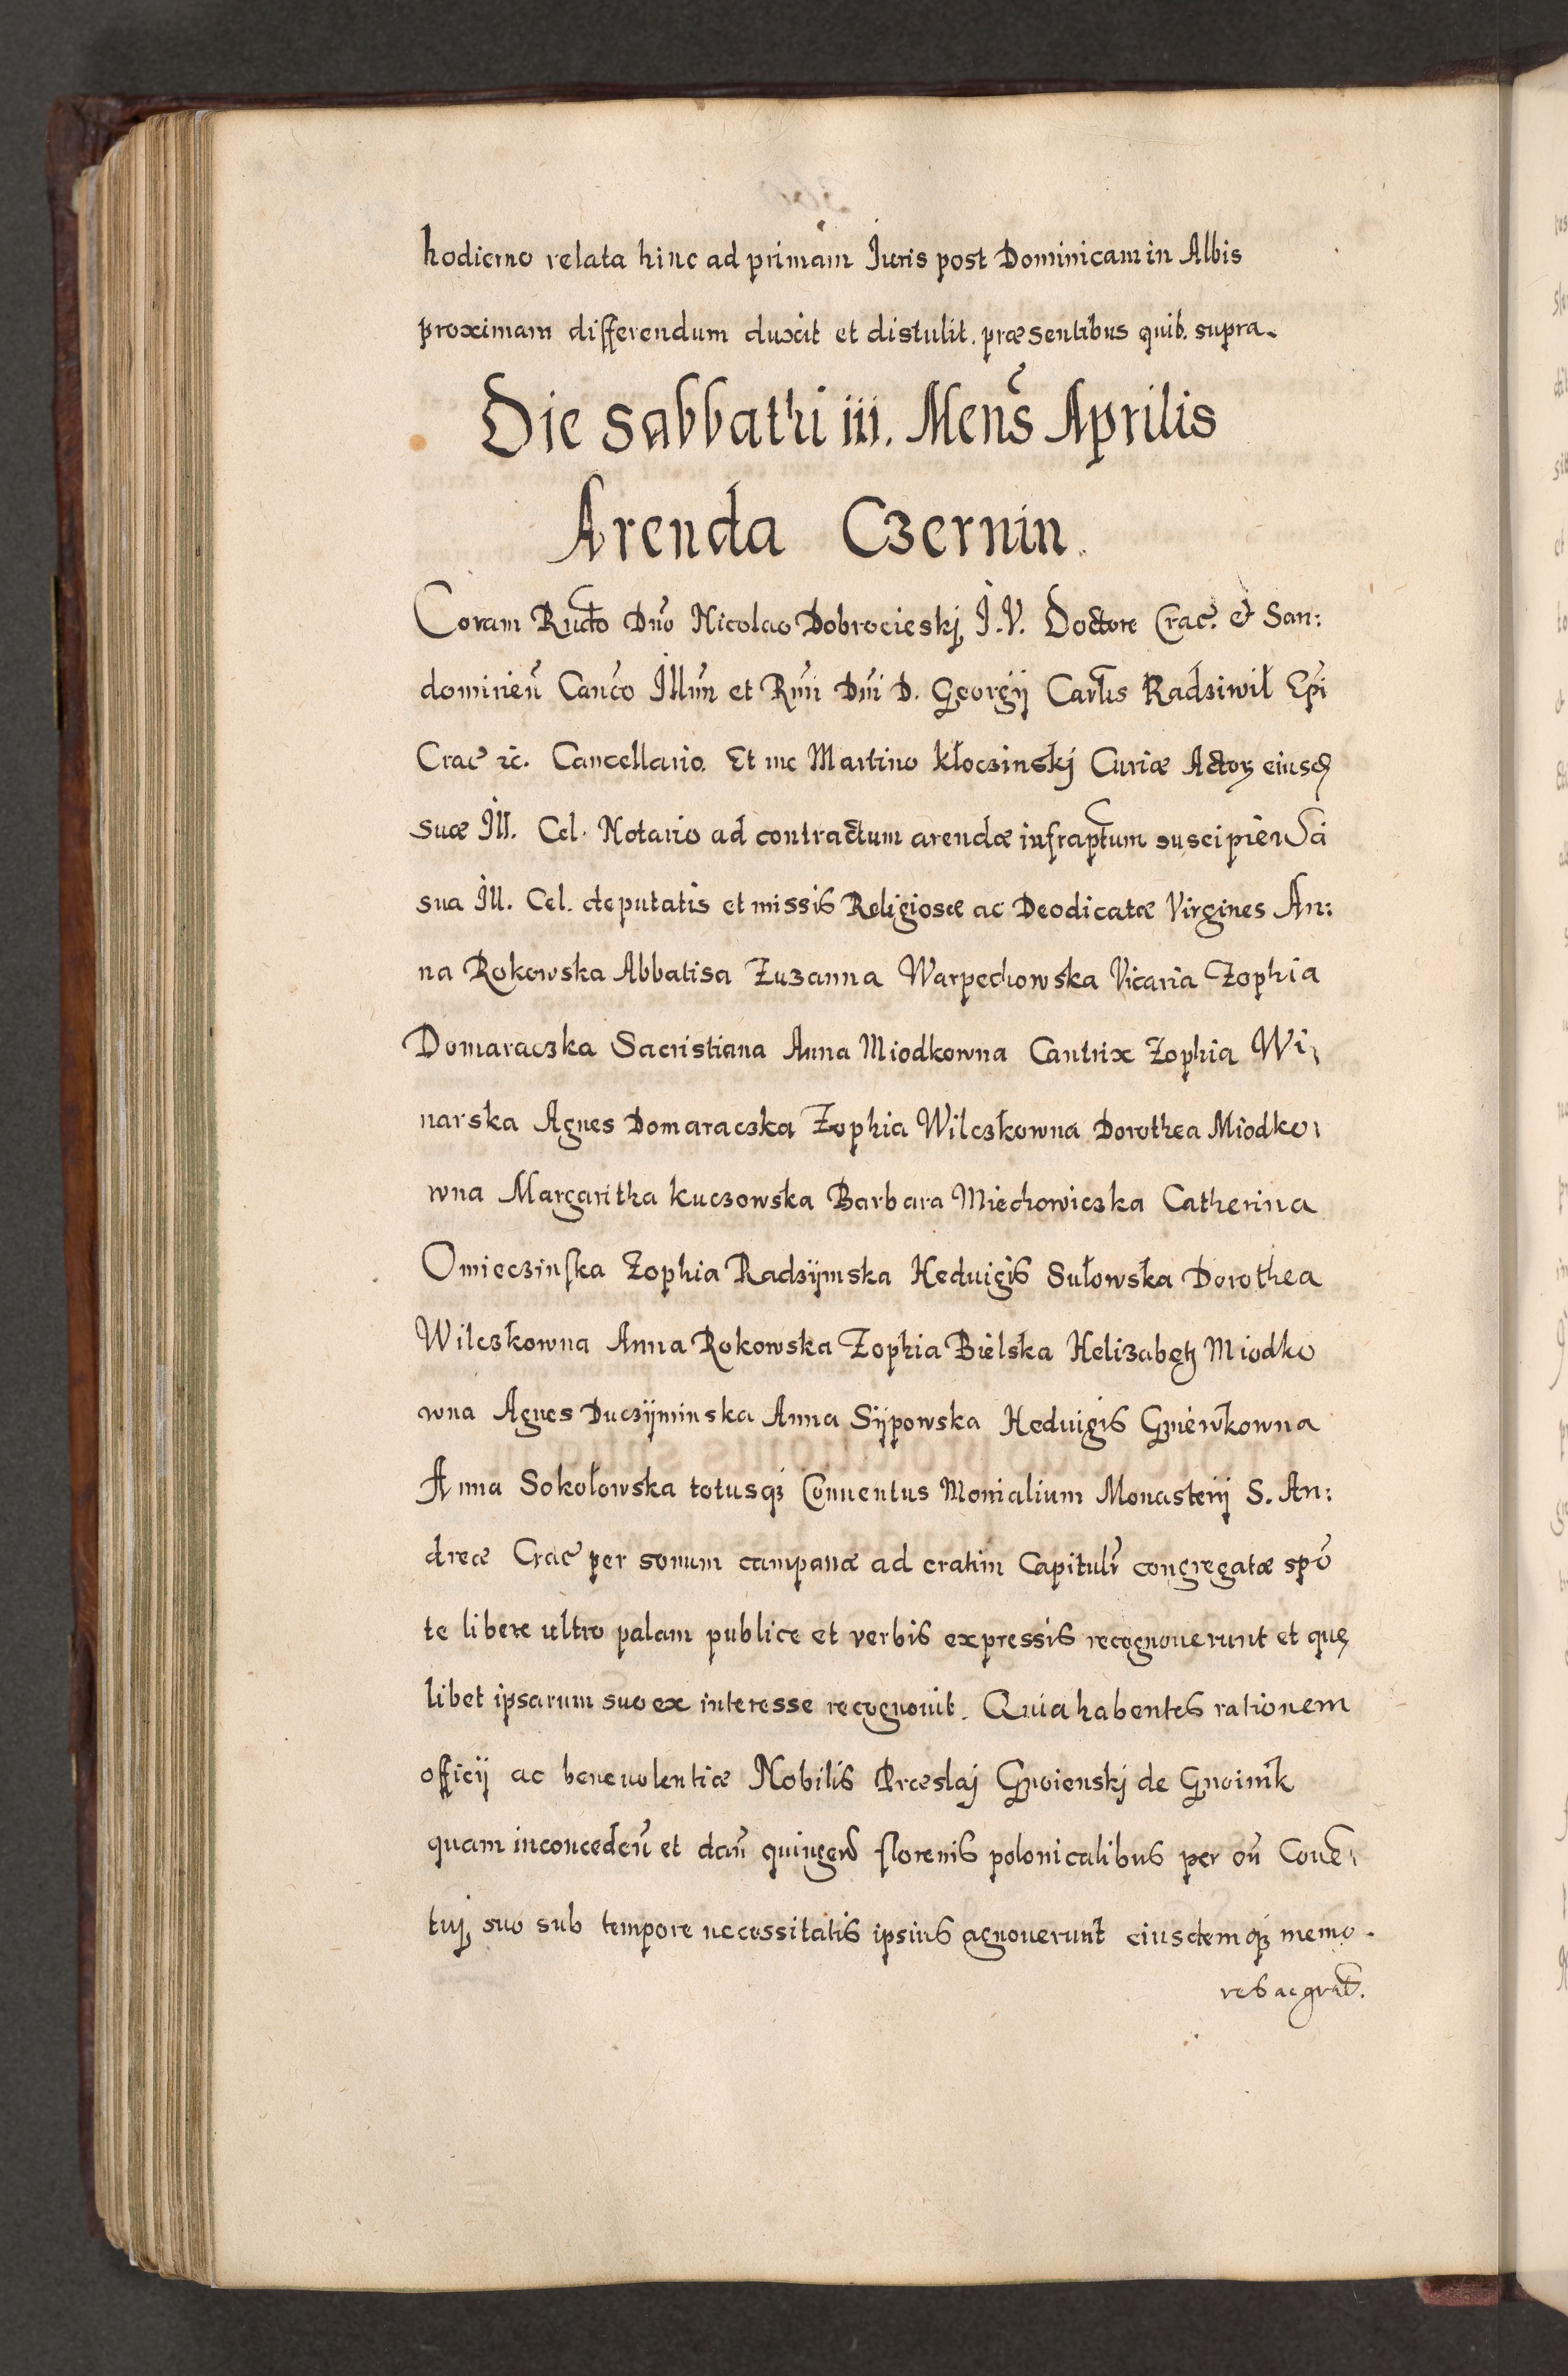 hodierno relata hinc ad primam Iuris post Dominicam in Albis
proximam differendum duxit et distulit. præsentibus quib. supra.
Die Sabbathi iii. Mens̃ Aprilis
Arenda Czernin.
Coram Rndo Dno Nicolao Dobrocieski, I.V. Doctore Crac. & San:
domirien̄ Canco Illmi et Rmi Dni D. Georgij Carlis Radziwił Epi
Crac̄ ꝛc. Cancellario. Et me Martino Kłoczinskj Curiæ Actoꝝ eiusd
suæ Ill. Cel. Notario ad contractum arendæ infraptum suscipiendū a
sua Ill. Cel. deputatis et missis Religiosæ ac Deodicatæ Virgines An:
na Rokowska Abbatisa Zuzanna Warpechowska Vicaria Zophia
Domaraczka Sacristiana Anna Miodkowna Cantrix Zophia Wi
narska Agnes Domaraczka Zophia Wilczkowna Dorothea Miodko
wna Margaritha Kuczowska Barbara Miechowiczka Catherina
Omieczinska Zophia Radzijmska Heduigis Sułowska Dorothea
Wilczkowna Anna Rokowska Zophia Bielska Helizabeth Miodko
wna Agnes Duczijminska Anna Sijpowska Heduigis Gniewkowna
Anna Sokołowska totusqꝫ Conuentus Monialium Monasterij S. An:
dreæ Crac̄ per sonum campanæ ad cratim Capitulr̄ congregatæ spō
te libere ultro palam publice et verbis expressis recognouerunt et quę
libet ipsarum suo ex interesse recognouit. Quia habentes rationem
officij ac beneuolentiæ Nobilis Præslaj Gnoienskj de Gnoinik
quam in conceden̄ et dan̄ quingen̄ florenis polonicalibus per on̄ Conē
tuj, suo sub tempore necessitatis ipsius agnouerunt eiusdemqꝫ memo.
res ac grat.